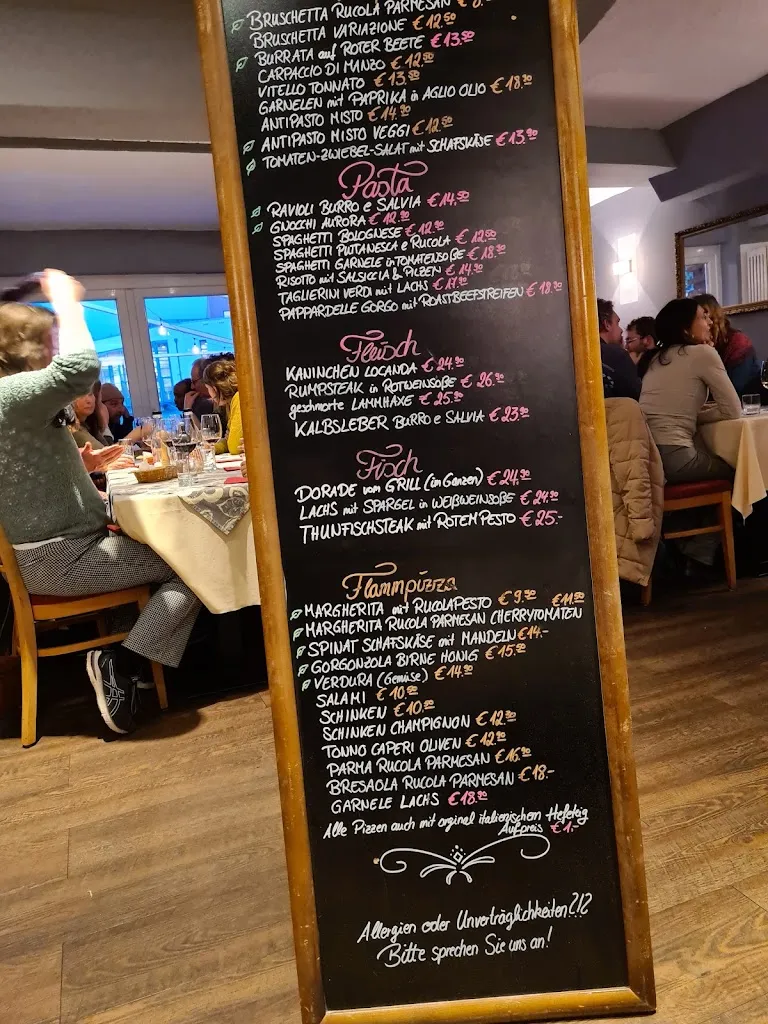 BRUSCHETTA RUCOLA PARMESAN € 8.-
BRUSCHETTA VARIAZIONE € 12.50
BURRATA auf ROTER BEETE € 13.50
CARPACCIO DI MANZO € 12.50
VITELLO TONNATO € 13.50
GARNELEN mit PAPRIKA in AGLIO OLIO € 18.90
ANTIPASTO MISTO € 14.90
ANTIPASTO MISTO VEGGI € 12.50
TOMATEN-ZWIEBEL-SALAT mit SCHAFSKÄSE € 13.90
Pasta
RAVIOLI BURRO e SALVIA € 14,50
GNOCCHI AURORA € 12.90
SPAGHETTI BOLOGNESE € 12.90
SPAGHETTI PUTANESCA e RUCOLA € 12.50
SPAGHETTI GARNELE in TOMATENSOßE € 18.90
RISOTTO mit SALSICCIA & PILZEN € 14.90
TAGLIERINI VERDI mit LACHS € 17.90
PAPPARDELLE GORGO mit ROASTBEEFSTREIFEN € 18.90
Fleisch
KANINCHEN LOCANDA € 24.90
RUMPSTEAK in ROTWEINSOßE € 26.90
geschmorte LAMMHAXE € 25.90
KALBSLEBER BURRO e SALVIA € 23.90
Fisch
DORADE vom GRILL (im Ganzen) € 24,90
LACHS mit SPARGEL in WEIßWEINSOßE € 24.90
THUNFISCHSTEAK mit ROTEM PESTO € 25.-
Flammpizza
MARGHERITA mit RUCOLAPESTO € 9.90
MARGHERITA RUCOLA PARMESAN CHERRYTOMATEN € 11.90
SPINAT SCHAFSKÄSE mit MANDELN € 14.-
GORGONZOLA BIRNE HONIG € 15.90
VERDURA (Gemüse) € 14.90
SALAMI € 10.90
SCHINKEN € 10.90
SCHINKEN CHAMPIGNON € 12.90
TONNO CAPERI OLIVEN € 12.90
PARMA RUCOLA PARMESAN € 16.90
BRESAOLA RUCOLA PARMESAN € 18.-
GARNELE LACHS € 18.90
Alle Pizzen auch mit orginel italienischem Hefeteig
Aufpreis € 1.-
Allergien oder Unverträglichkeiten?!?
Bitte sprechen Sie uns an!